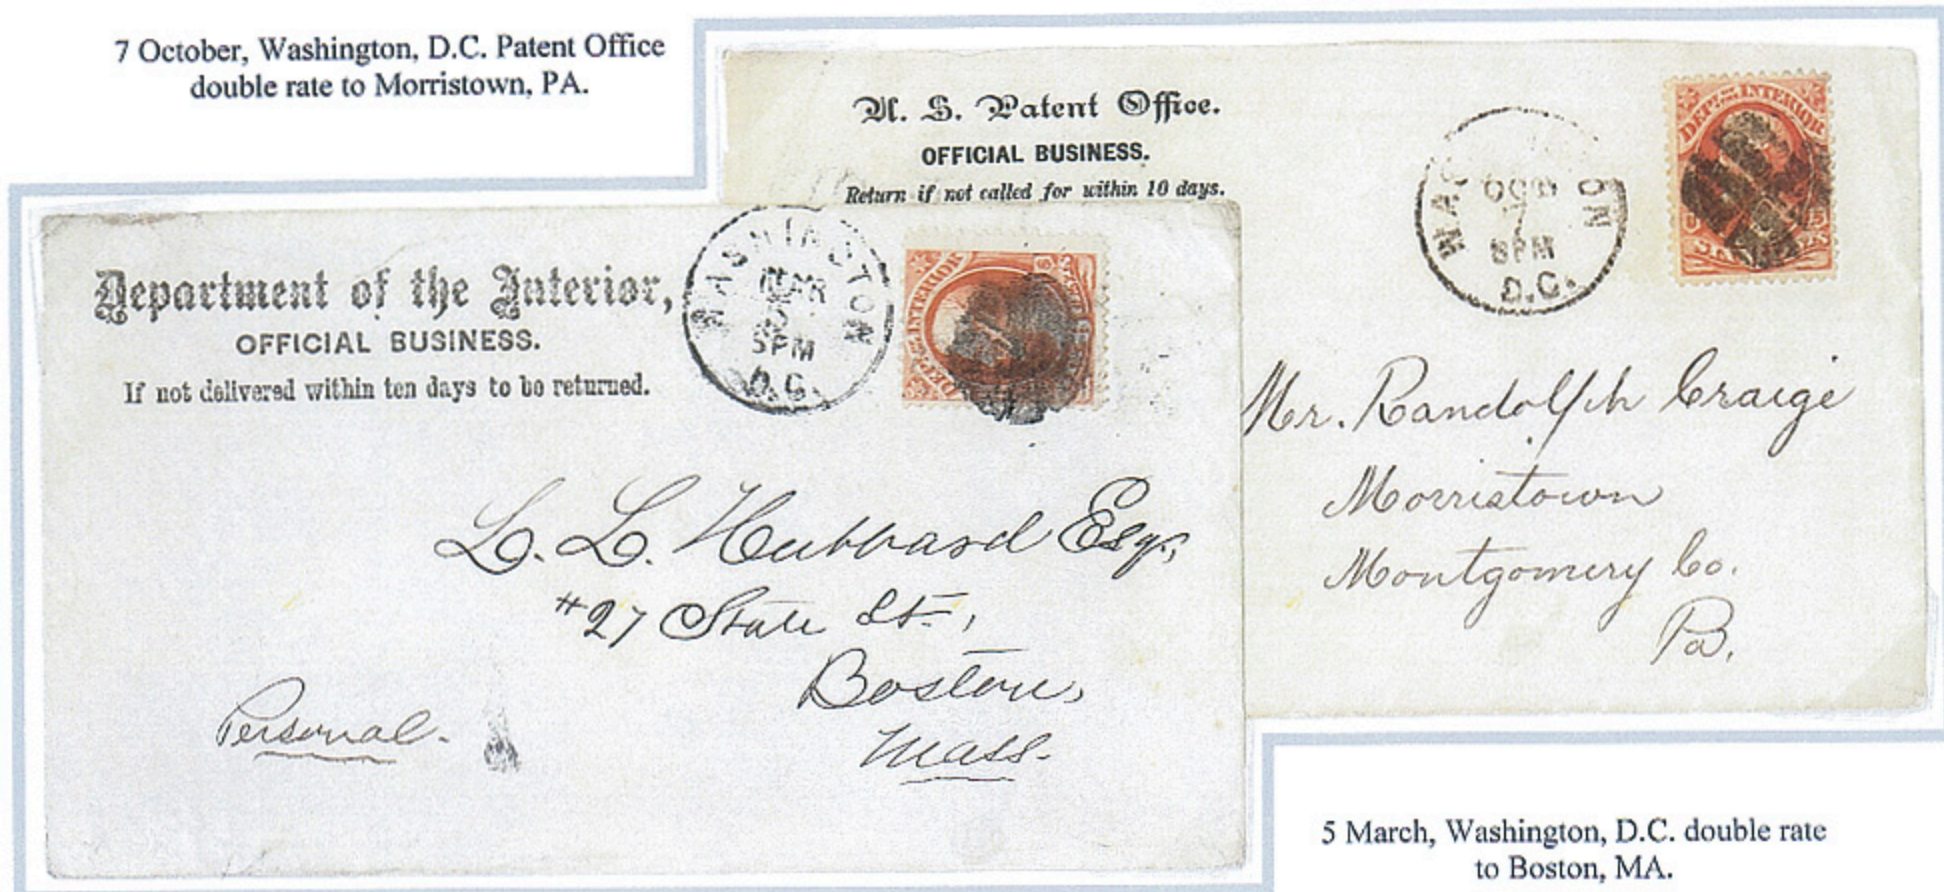 7 October, Washington, D.C. Patent Office
double rate to Morristown, PA.
U. S. Patent Office.
OFFICIAL BUSINESS.
Return if not called for within 10 days.
OCT
7
8PM
D.C.
DEP. OF THE INTERIOR
Mr. Randolph Craige
Morristown
Montgomery Co.
Pa.
Department of the Interior,
OFFICIAL BUSINESS.
If not delivered within ten days to be returned.
WASHINGTON
MAR
5
5PM
D.C.
DEP. OF THE INTERIOR
L. L. Hubbard Esq.,
#27 State St.,
Boston,
Mass.
Personal.
5 March, Washington, D.C. double rate
to Boston, MA.